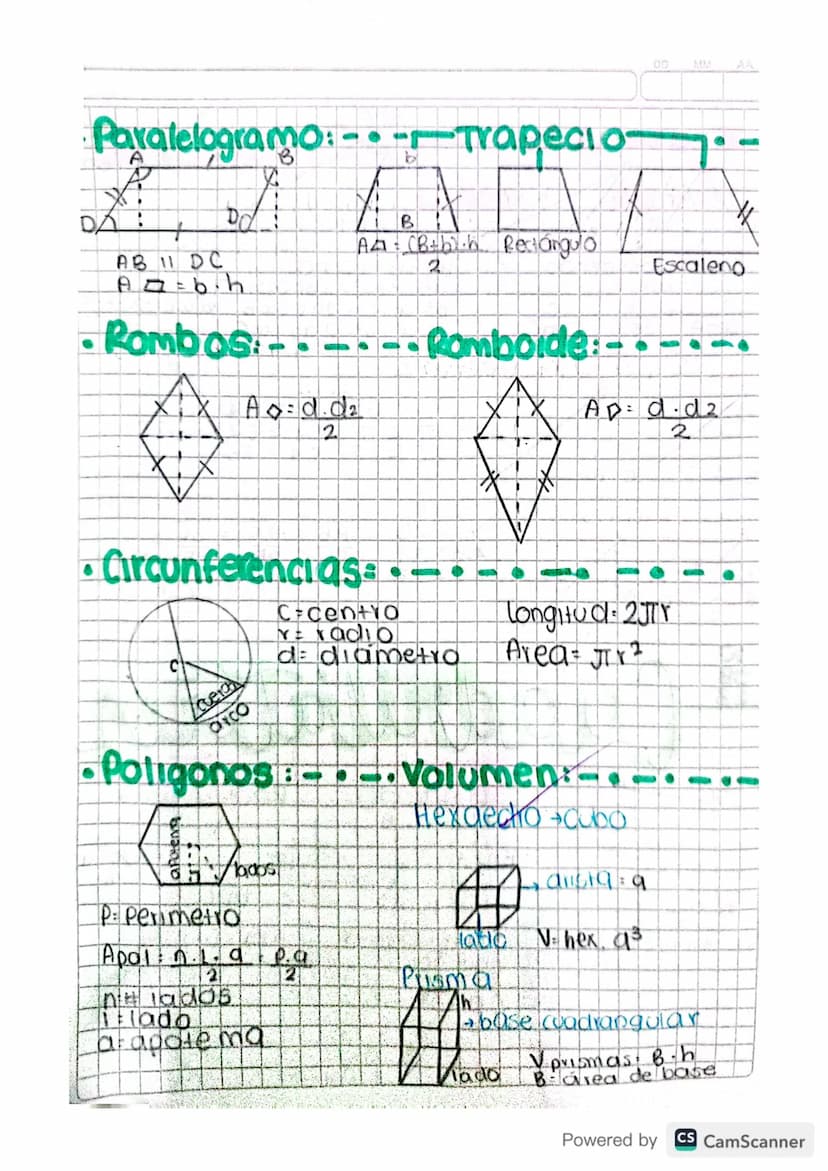 DD MM AA
Paralelogramo: Trapecio
A B b
D D B
AB || DC
A ▱ = b·h
A⏢ = (B+b)·h
2
Rectángulo
Escaleno
• Rombos: Romboide:
A◇ = d·d2
2
A▷ = d·d2
2
• Circunferencias:
C
cuerda
arco
C=centro
r= radio
d= diámetro
longitud= 2πr
Area= πr²
• Poligonos: • Volumen:
apotema
lados
P= Perimetro
Apol= n·L·a = p.a
2 2
n=# lados
l=lado
a=apotema
Hexaedro → cubo
→ arista = a
lado
V= hex. a³
Prisma
h
→ base cuadrangular
lado
V prismas= B·h
B= área de base
Powered by CS CamScanner